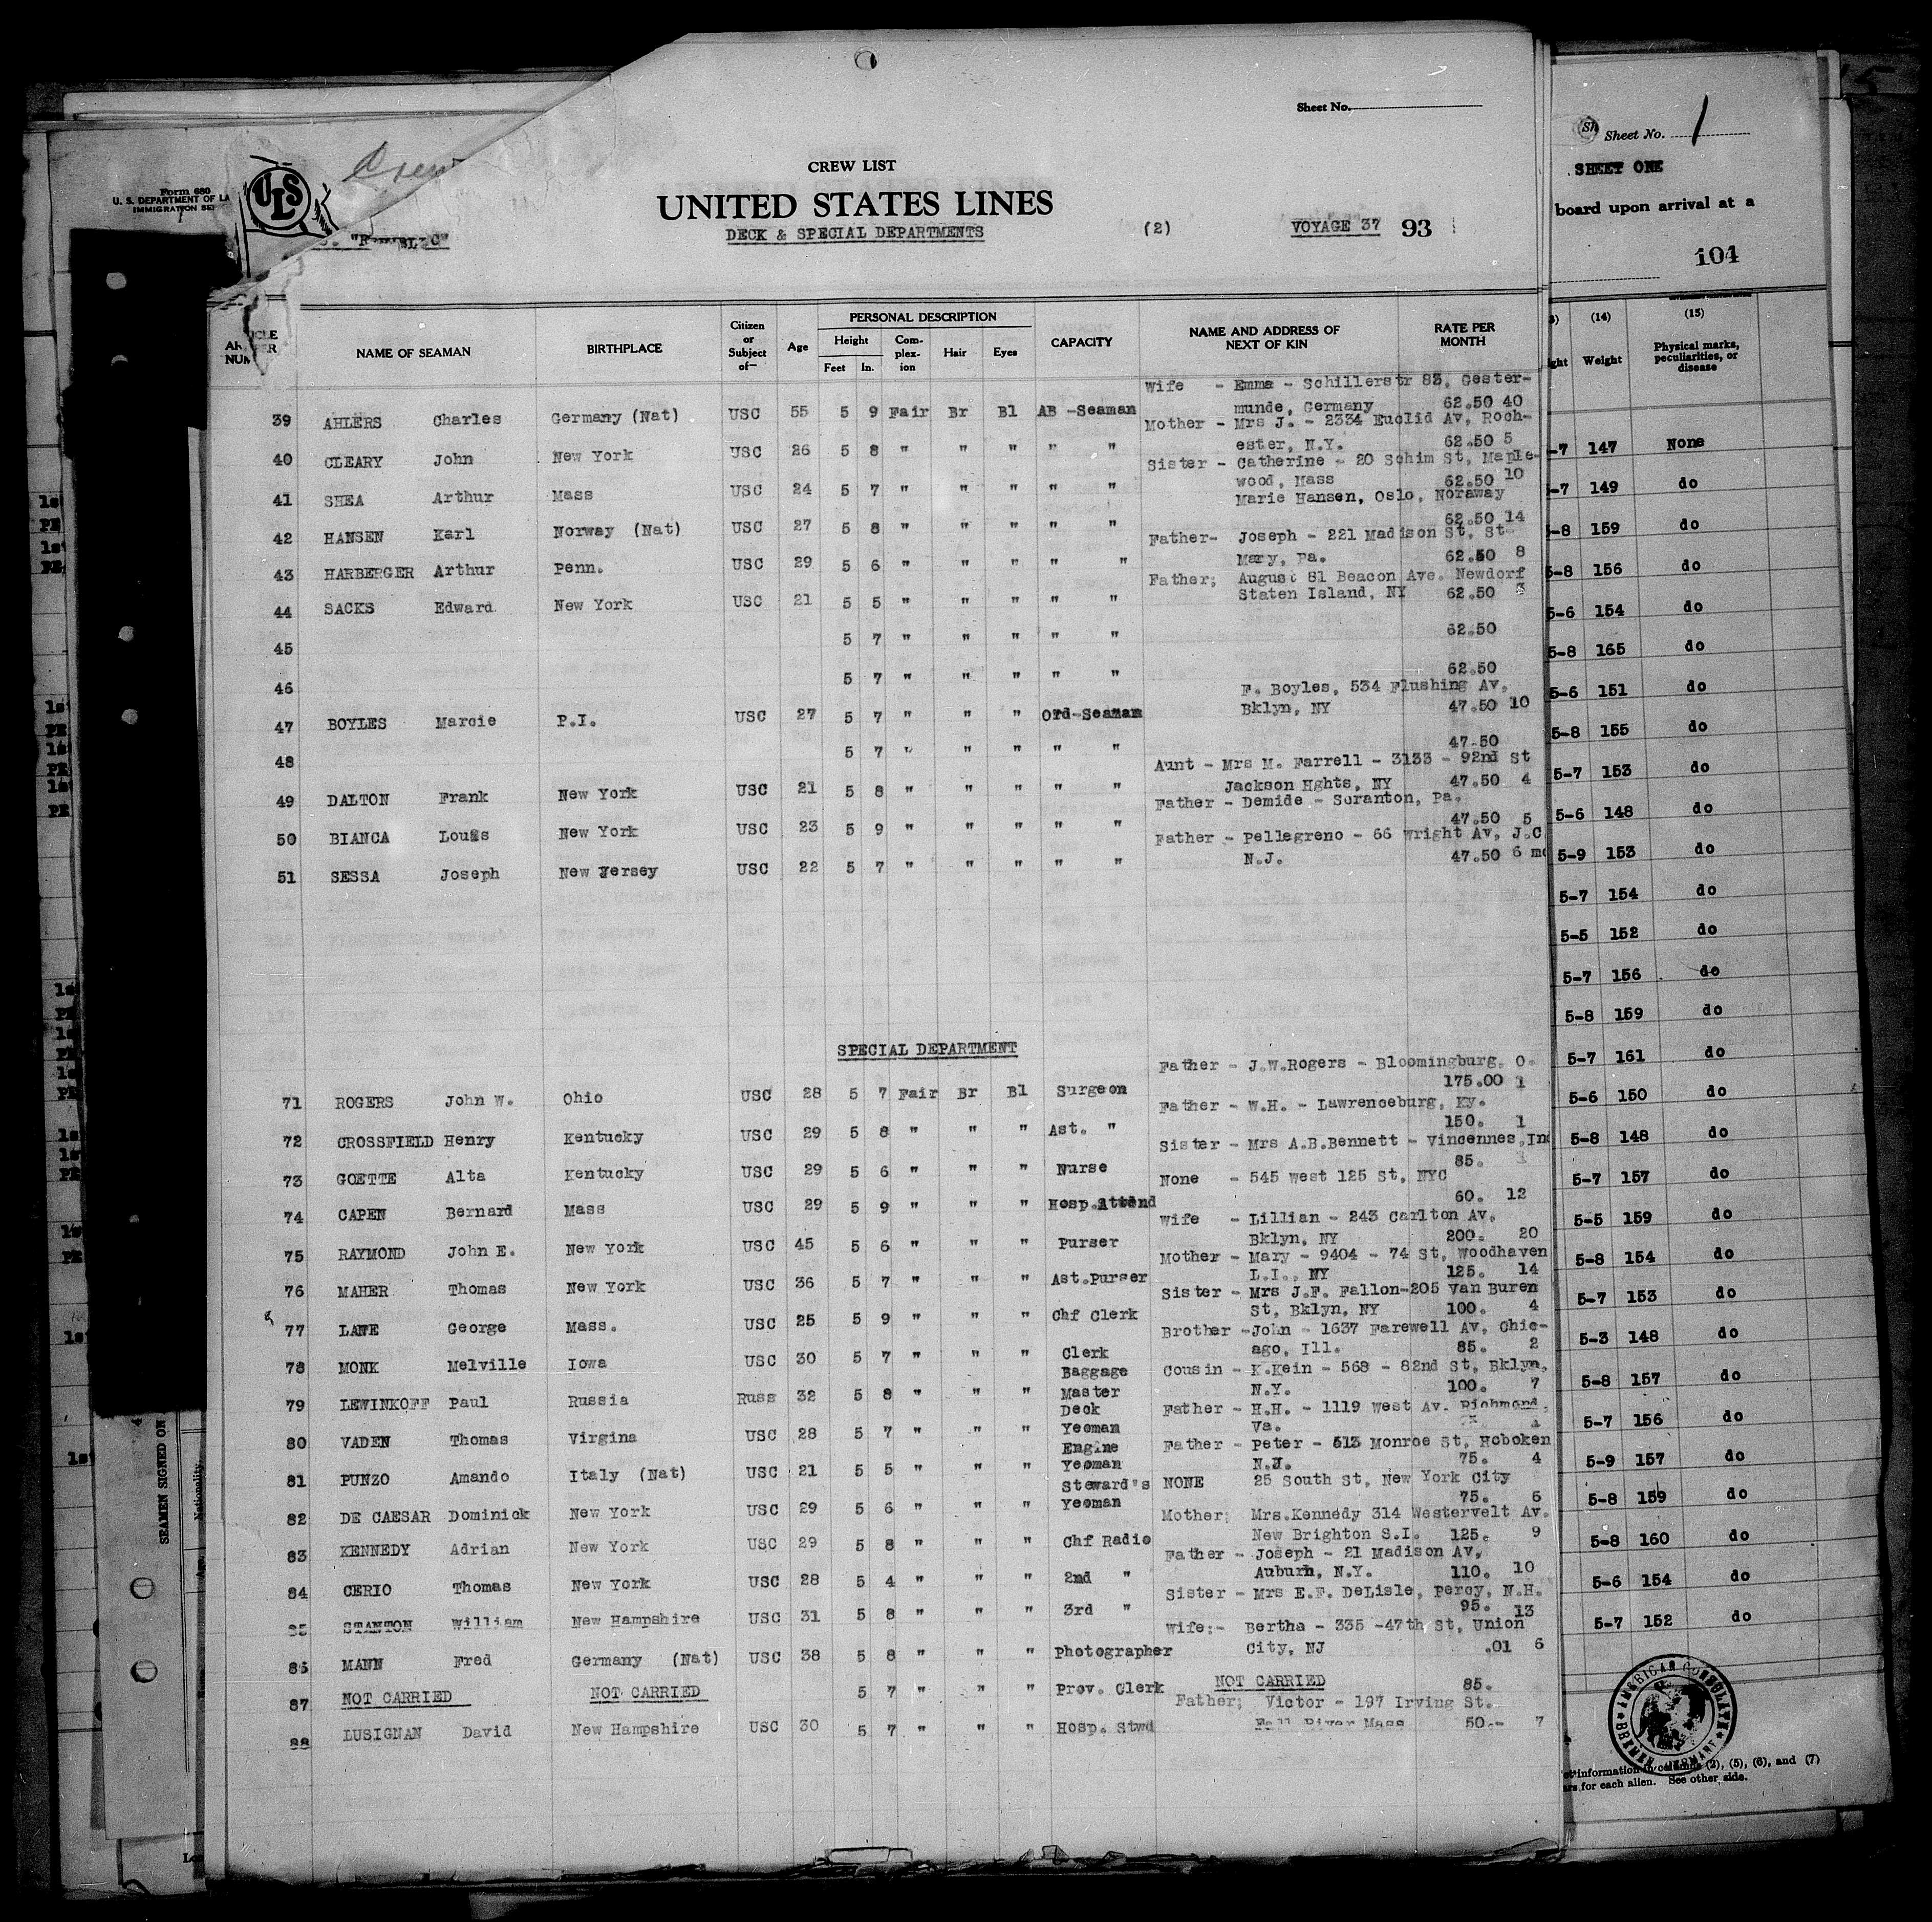 Sheet No.
Crew
ULS
CREW LIST
UNITED STATES LINES
DECK & SPECIAL DEPARTMENTS (2) VOYAGE 37 93
Form 680
U. S. DEPARTMENT OF LA
IMMIGRATION SE
"REPUBLIC"
Sheet No. 1
SHEET ONE
board upon arrival at a
104
NAME OF SEAMAN BIRTHPLACE Citizen or Subject of— Age PERSONAL DESCRIPTION Height Feet In. Complexion Hair Eyes CAPACITY NAME AND ADDRESS OF NEXT OF KIN RATE PER MONTH
Wife - Emma - Schillerstr 83, Gester-
39 AHLERS Charles Germany (Nat) USC 55 5 9 Fair Br Bl AB -Seaman munde, Germany 62.50 40
Mother - Mrs J. - 2334 Euclid Av, Roch-
40 CLEARY John New York USC 26 5 8 " " " " " ester, N.Y. 62.50 5
Sister - Catherine - 20 Schim St, Maple-
41 SHEA Arthur Mass USC 24 5 7 " " " " " wood, Mass 62.50 10
Marie Hansen, Oslo, Noraway
42 HANSEN Karl Norway (Nat) USC 27 5 8 " " " " " 62.50 14
Father- Joseph - 221 Madison St, St
43 HARBERGER Arthur Penn. USC 29 5 6 " " " " " Mary, Pa. 62.50 8
Father; August 81 Beacon Ave. Newdorf
44 SACKS Edward New York USC 21 5 5 " " " " " Staten Island, NY 62.50 3
45 5 7 " " " " " 62.50
46 5 7 " " " " " 62.50
F. Boyles, 534 Flushing Av,
47 BOYLES Marcie P.I. USC 27 5 7 " " " Ord-Seaman Bklyn, NY 47.50 10
48 5 7 " " " " " 47.50
Aunt - Mrs M. Farrell - 3133 - 92nd St
49 DALTON Frank New York USC 21 5 8 " " " " " Jackson Hghts, NY 47.50 4
Father - Demide - Scranton, Pa.
50 BIANCA Louis New York USC 23 5 9 " " " " " 47.50 5
Father - Pellegreno - 66 Wright Av, J.C
51 SESSA Joseph New Jersey USC 22 5 7 " " " " " N.J. 47.50 6 mo
SPECIAL DEPARTMENT
Father - J.W.Rogers - Bloomingburg, O.
71 ROGERS John W. Ohio USC 28 5 7 Fair Br Bl Surgeon 175.00 1
Father - W.H. - Lawrenceburg, Ky.
72 CROSSFIELD Henry Kentucky USC 29 5 8 " " " Ast. " 150. 1
Sister - Mrs A.B.Bennett - Vincennes, Ind
73 GOETTE Alta Kentucky USC 29 5 6 " " " Nurse 85.
None - 545 West 125 St, NYC
74 CAPEN Bernard Mass USC 29 5 9 " " " Hosp.Attend 60. 12
Wife - Lillian - 243 Carlton Av,
75 RAYMOND John E. New York USC 45 5 6 " " " Purser Bklyn, NY 200. 20
Mother - Mary - 9404 - 74 St, Woodhaven
76 MAHER Thomas New York USC 36 5 7 " " " Ast.Purser L.I., NY 125. 14
Sister - Mrs J.F. Fallon-205 Van Buren
77 LANE George Mass. USC 25 5 9 " " " Chf Clerk St, Bklyn, NY 100. 4
Brother -John - 1637 Farewell Av, Chic-
78 MONK Melville Iowa USC 30 5 7 " " " Clerk ago, Ill. 85. 2
Baggage Cousin - K.Kein - 568 - 82nd St, Bklyn,
79 LEWINKOFF Paul Russia Russ 32 5 8 " " " Master N.Y. 100. 7
Deck Father - H.H. - 1119 West Av. Richmond,
80 VADEN Thomas Virgina USC 28 5 7 " " " Yeoman Va.
Engine Father - Peter - 513 Monroe St, Hoboken
81 PUNZO Amando Italy (Nat) USC 21 5 5 " " " Yeoman N.J. 75. 4
Steward's NONE 25 South St, New York City
82 DE CAESAR Dominick New York USC 29 5 6 " " " Yeoman 75. 6
Mother; Mrs.Kennedy 314 Westervelt Av.
83 KENNEDY Adrian New York USC 29 5 8 " " " Chf Radio New Brighton S.I. 125. 9
Father - Joseph - 21 Madison Av,
84 CERIO Thomas New York USC 28 5 4 " " " 2nd " Auburn, N.Y. 110. 10
Sister - Mrs E.F. DeLisle, Percy, N.H.
85 STANTON William New Hampshire USC 31 5 8 " " " 3rd " 95. 13
Wife:- Bertha - 335 -47th St, Union
86 MANN Fred Germany (Nat) USC 38 5 8 " " " Photographer City, NJ .01 6
87 NOT CARRIED NOT CARRIED 5 7 " " " Prov. Clerk NOT CARRIED 85.
Father; Victor - 197 Irving St.
88 LUSIGNAN David New Hampshire USC 30 5 7 " " " Hosp. Stwd Fall River Mass 50.- 7
(14) (15)
Weight Physical marks, peculiarities, or disease
5-7 147 None
5-7 149 do
5-8 159 do
5-8 156 do
5-6 154 do
5-8 165 do
5-6 151 do
5-8 155 do
5-7 153 do
5-6 148 do
5-9 153 do
5-7 154 do
5-5 152 do
5-7 156 do
5-8 159 do
5-7 161 do
5-6 150 do
5-8 148 do
5-7 157 do
5-5 159 do
5-8 154 do
5-7 153 do
5-3 148 do
5-8 157 do
5-7 156 do
5-9 157 do
5-8 159 do
5-8 160 do
5-6 154 do
5-7 152 do
AMERICAN CONSULATE BREMEN GERMANY
information in columns (2), (5), (6), and (7)
for each alien. See other side.
SEAMEN SIGNED ON
Nationality